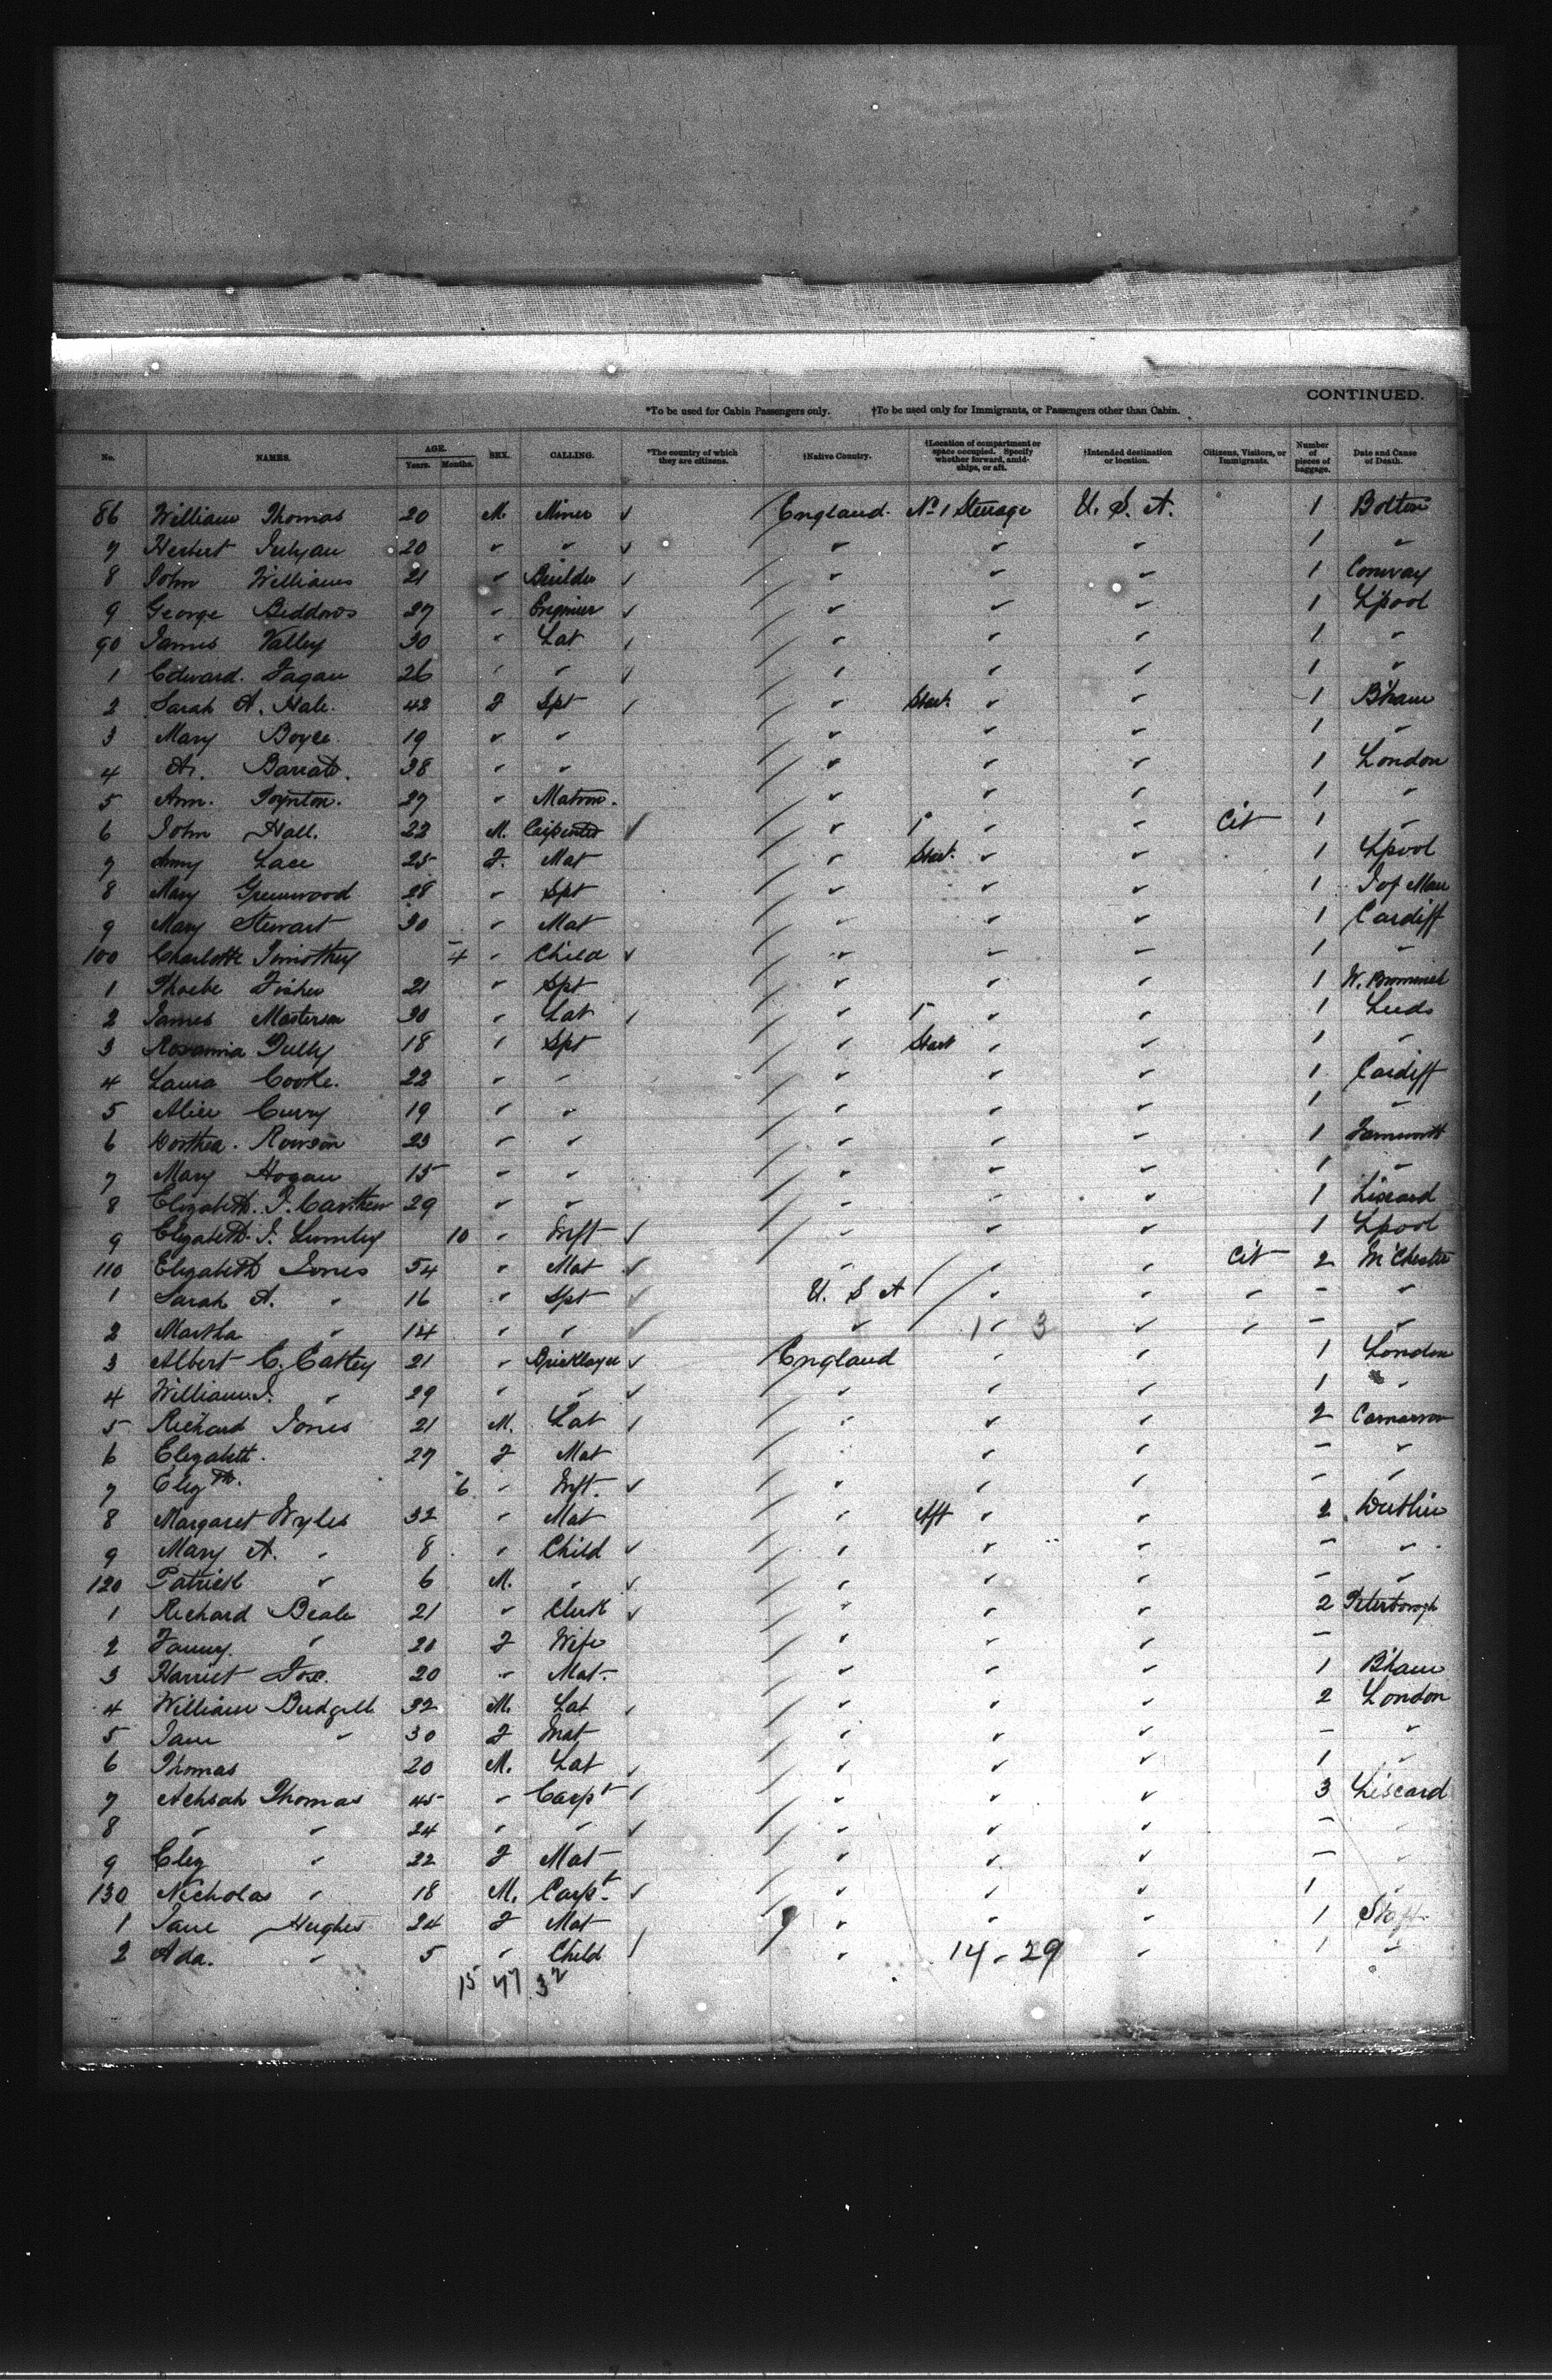 CONTINUED.
*To be used for Cabin Passengers only. †To be used only for Immigrants, or Passengers other than Cabin.
No. NAMES. AGE. Years. Months. SEX. CALLING. *The country of which they are citizens. †Native Country. †Location of compartment or space occupied. Specify whether forward, amidships, or aft. †Intended destination or location. Citizens, Visitors, or Immigrants. Number of pieces of baggage. Date and Cause of Death.
86 William Thomas 20 M. Miner ✓ England No 1 Steerage U. S. A. 1 Bolton
7 Herbert 20 " " ✓ " " " 1 "
8 John Williams 21 " Builder ✓ " " " 1 Conway
9 George Beddows 27 " Engineer ✓ " " " 1 L'pool
90 James Valley 30 " Lab " " " 1 "
1 Edward Fagan 26 " " " " " 1 "
2 Sarah A. Hale. 42 F Spt " " " 1 B'ham
3 Mary Boyce 19 " " " " " 1 "
4 A. 38 " " " " " 1 London
5 Ann. Poynton. 27 " Matron. " " " 1 "
6 John Hall. 22 M. Carpenter ✓ " 1 " " Cit 1 "
7 Amy Lace 25 F. Mat " " " 1 Lpool
8 Mary Greenwood 28 " Spt " " " 1 I of Man
9 Mary Stewart 30 " Mat " " " 1 Cardiff
100 Charlotte Timothy 4 " Child ✓ " " " 1 "
1 Phoebe Fisher 21 " Spt " " " 1
2 James Masterson 30 " Lab " 1 " " 1 Leeds
3 Rosanna Tully 18 " Spt " " " 1 "
4 Laura Cooke. 22 " " " " " 1 Cardiff
5 Alice Curry 19 " " " " " 1 "
6 Dorthea. Rowson 23 " " " " " 1
7 Mary Hogan 15 " " " " " 1 "
8 Elizabeth. J. Carthew 29 " " " " " 1 Liscard
9 Elizabeth. J. Lumley 10 " Inft ✓ " " " 1 Lpool
110 Elizabeth Jones 54 " Mat ✓ " " " Cit 2 M'Chester
1 Sarah A. " 16 " Spt ✓ U. S A " " " - "
2 Martha " 14 " " ✓ " 1 - 3 " " - "
3 Albert C. 21 " Bricklayer ✓ England " " 1 London
4 William J. " 29 " " ✓ " " " 1 "
5 Richard Jones 21 M. Lab " " " 2 Carnarvon
6 Elizabeth. 27 F Mat " " " - "
7 Eliz th. 6 " Inft. ✓ " " " - "
8 Margaret Wyles 32 " Mat " Aft " " 2
9 Mary A. " 8 " Child ✓ " " " - "
120 Patrick " 6 M. " ✓ " " " - "
1 Richard Beale 21 " Clerk ✓ " " " 2 Peterborough
2 Fanny. " 20 F Wife " " " -
3 Harriet 20 " Mat. " " " 1 B'ham
4 William Budgell 32 M. Lab " " " 2 London
5 Jane " 30 F Mat " " " - "
6 Thomas 20 M. Lab " " " 1 "
7 Achsah Thomas 45 " Carpt " " " 3 Liscard
8 " " 24 " " ✓ " " " -
9 Eliz " 22 F Mat " " " -
130 Nicholas " 18 M. Carpt. ✓ " " " 1
1 Jane Hughes 24 F Mat " " " 1
2 Ada. " 5 " Child " 14 - 29 " 1 "
15 47 32